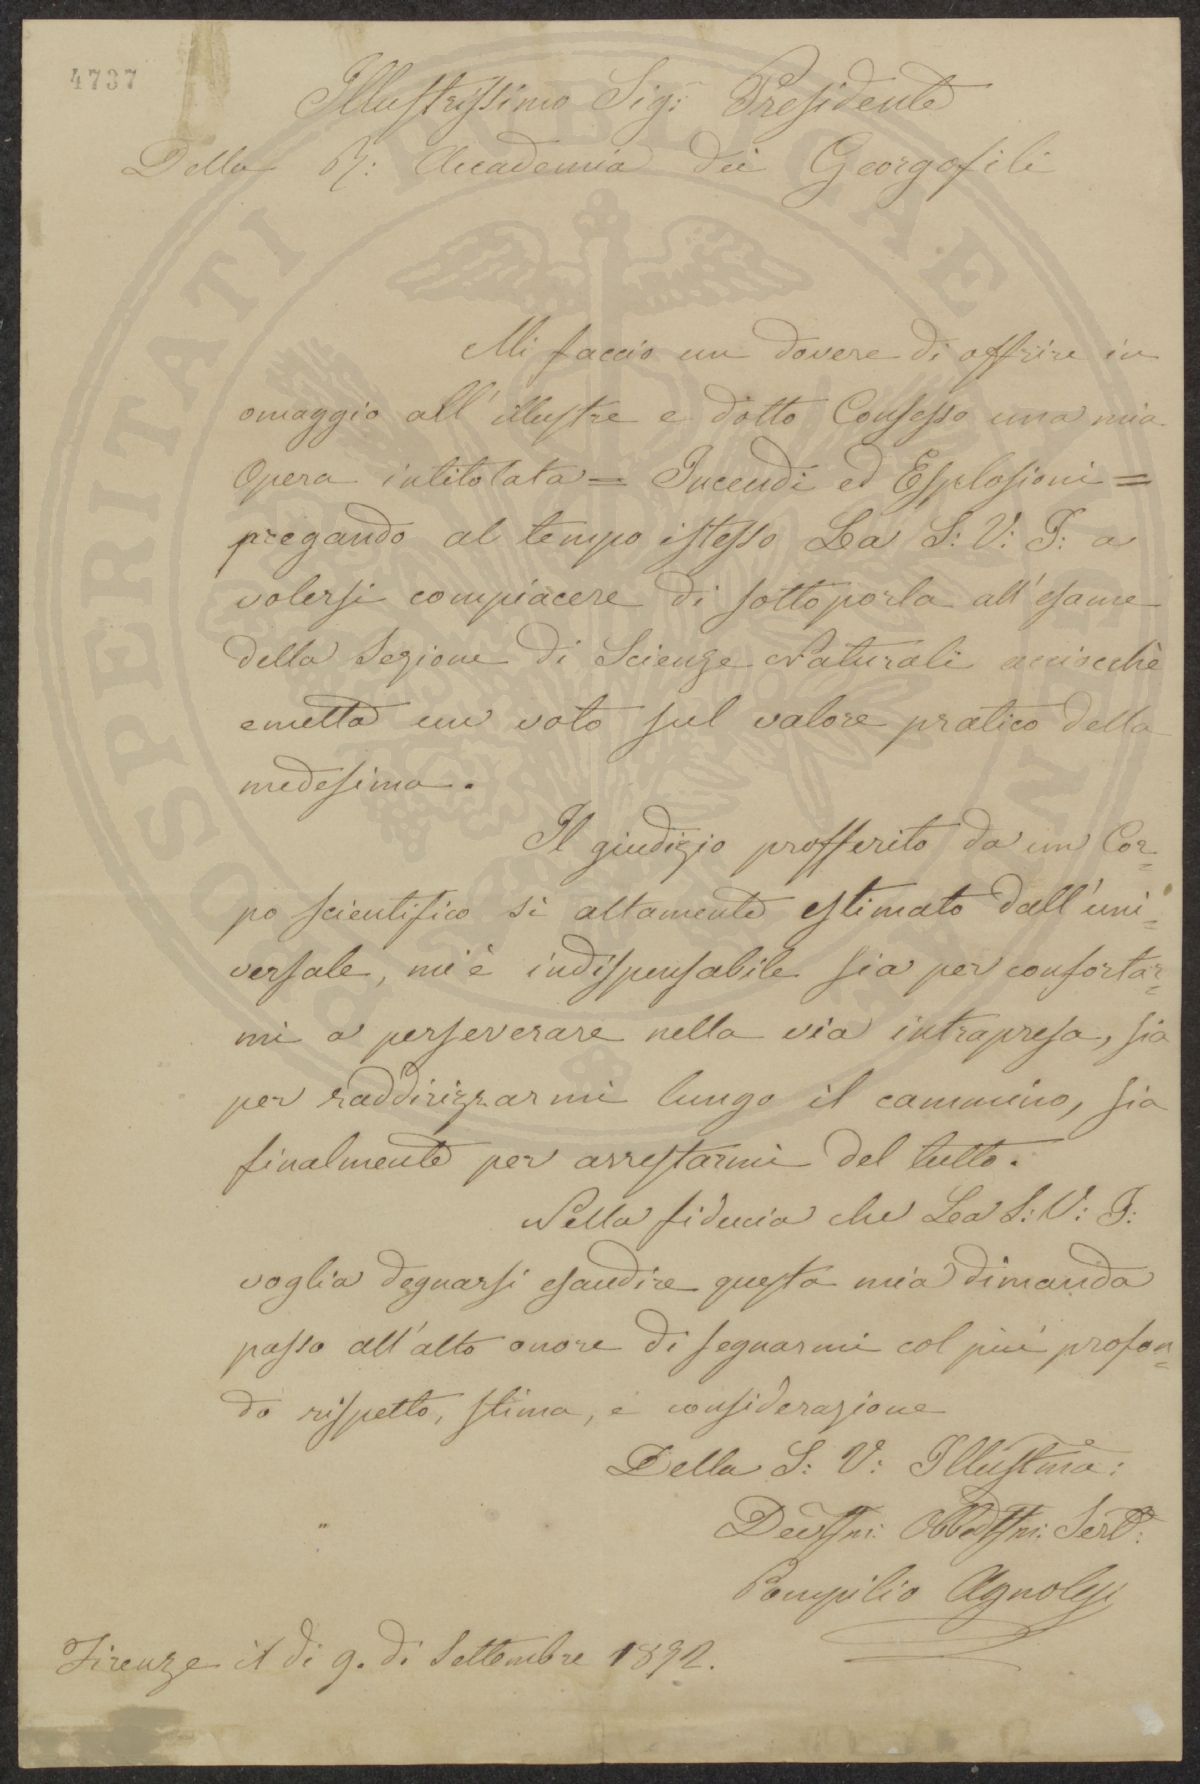 4737
Illustrissimo Sig: Presidente
Della R: Accademia dei Georgofili
Mi faccio un dovere di offrire in
omaggio all'illustre e dotto Consesso una mia
Opera intitolata = Incendi ed Esplosioni =
pregando al tempo istesso La S: V: I: a
volersi compiacere di sottoporla all'esame
della Sezione di Scienze Naturali acciocchè
emetta un voto sul valore pratico della
medesima.
Il giudizio profferito da un Cor=
po scientifico sì altamente estimato dall'uni=
versale, m'è indispensabile sia per confortar=
mi a perseverare nella via intrapresa, sia
per raddirizzarmi lungo il cammino, sia
finalmente per arrestarmi del tutto.
Nella fiducia che La S: V: I:
voglia degnarsi esaudire questa mia dimanda
passo all'alto onore di segnarmi col più profon=
do rispetto, stima, e considerazione
Della S: V: Illustma:
Devssmi: Obbedssmi: Serv:
Pompilio Agnolesi
Firenze il dì 9. di Settembre 1892.
PROSPERITATI PUBLICAE AUGENDAE